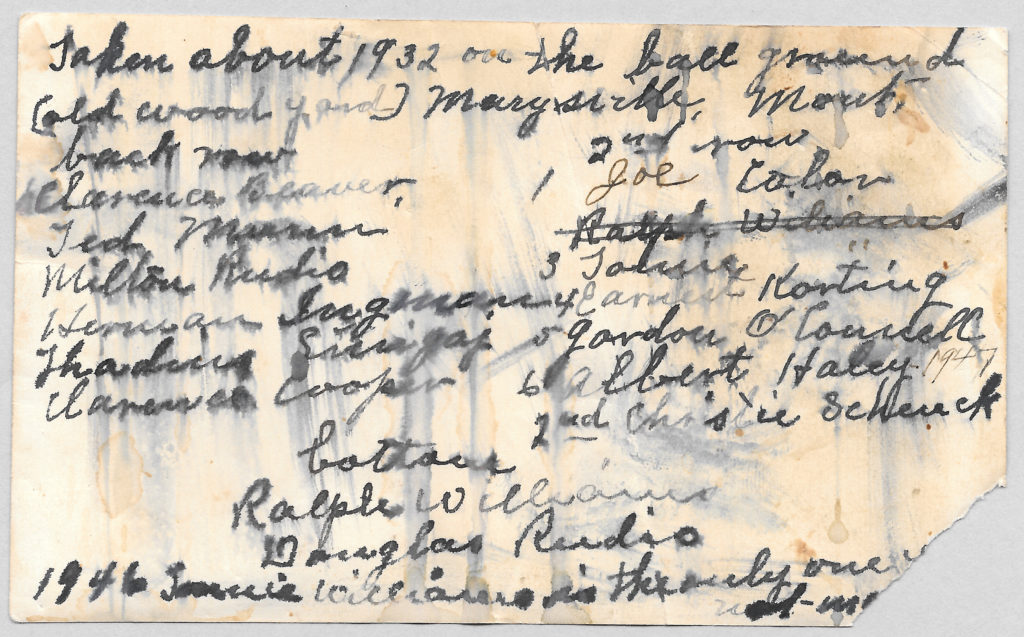 Taken about 1932 on the ball ground
(old wood yard) Marysville, Mont.
back row
Clarence Beaver,
Ted Mann
Milton Rudio
Herman Ingman
Thadius
Clarence Cooper
2nd row
1 Joe
Ralph Wilians
3
4 Earnest Korting
5 Gordon O'Connell
6 Albert Haley 1947
2nd Christie Schenck
bottom
Ralph Williams
Douglas Rudio
1946 Williams is the only one
not